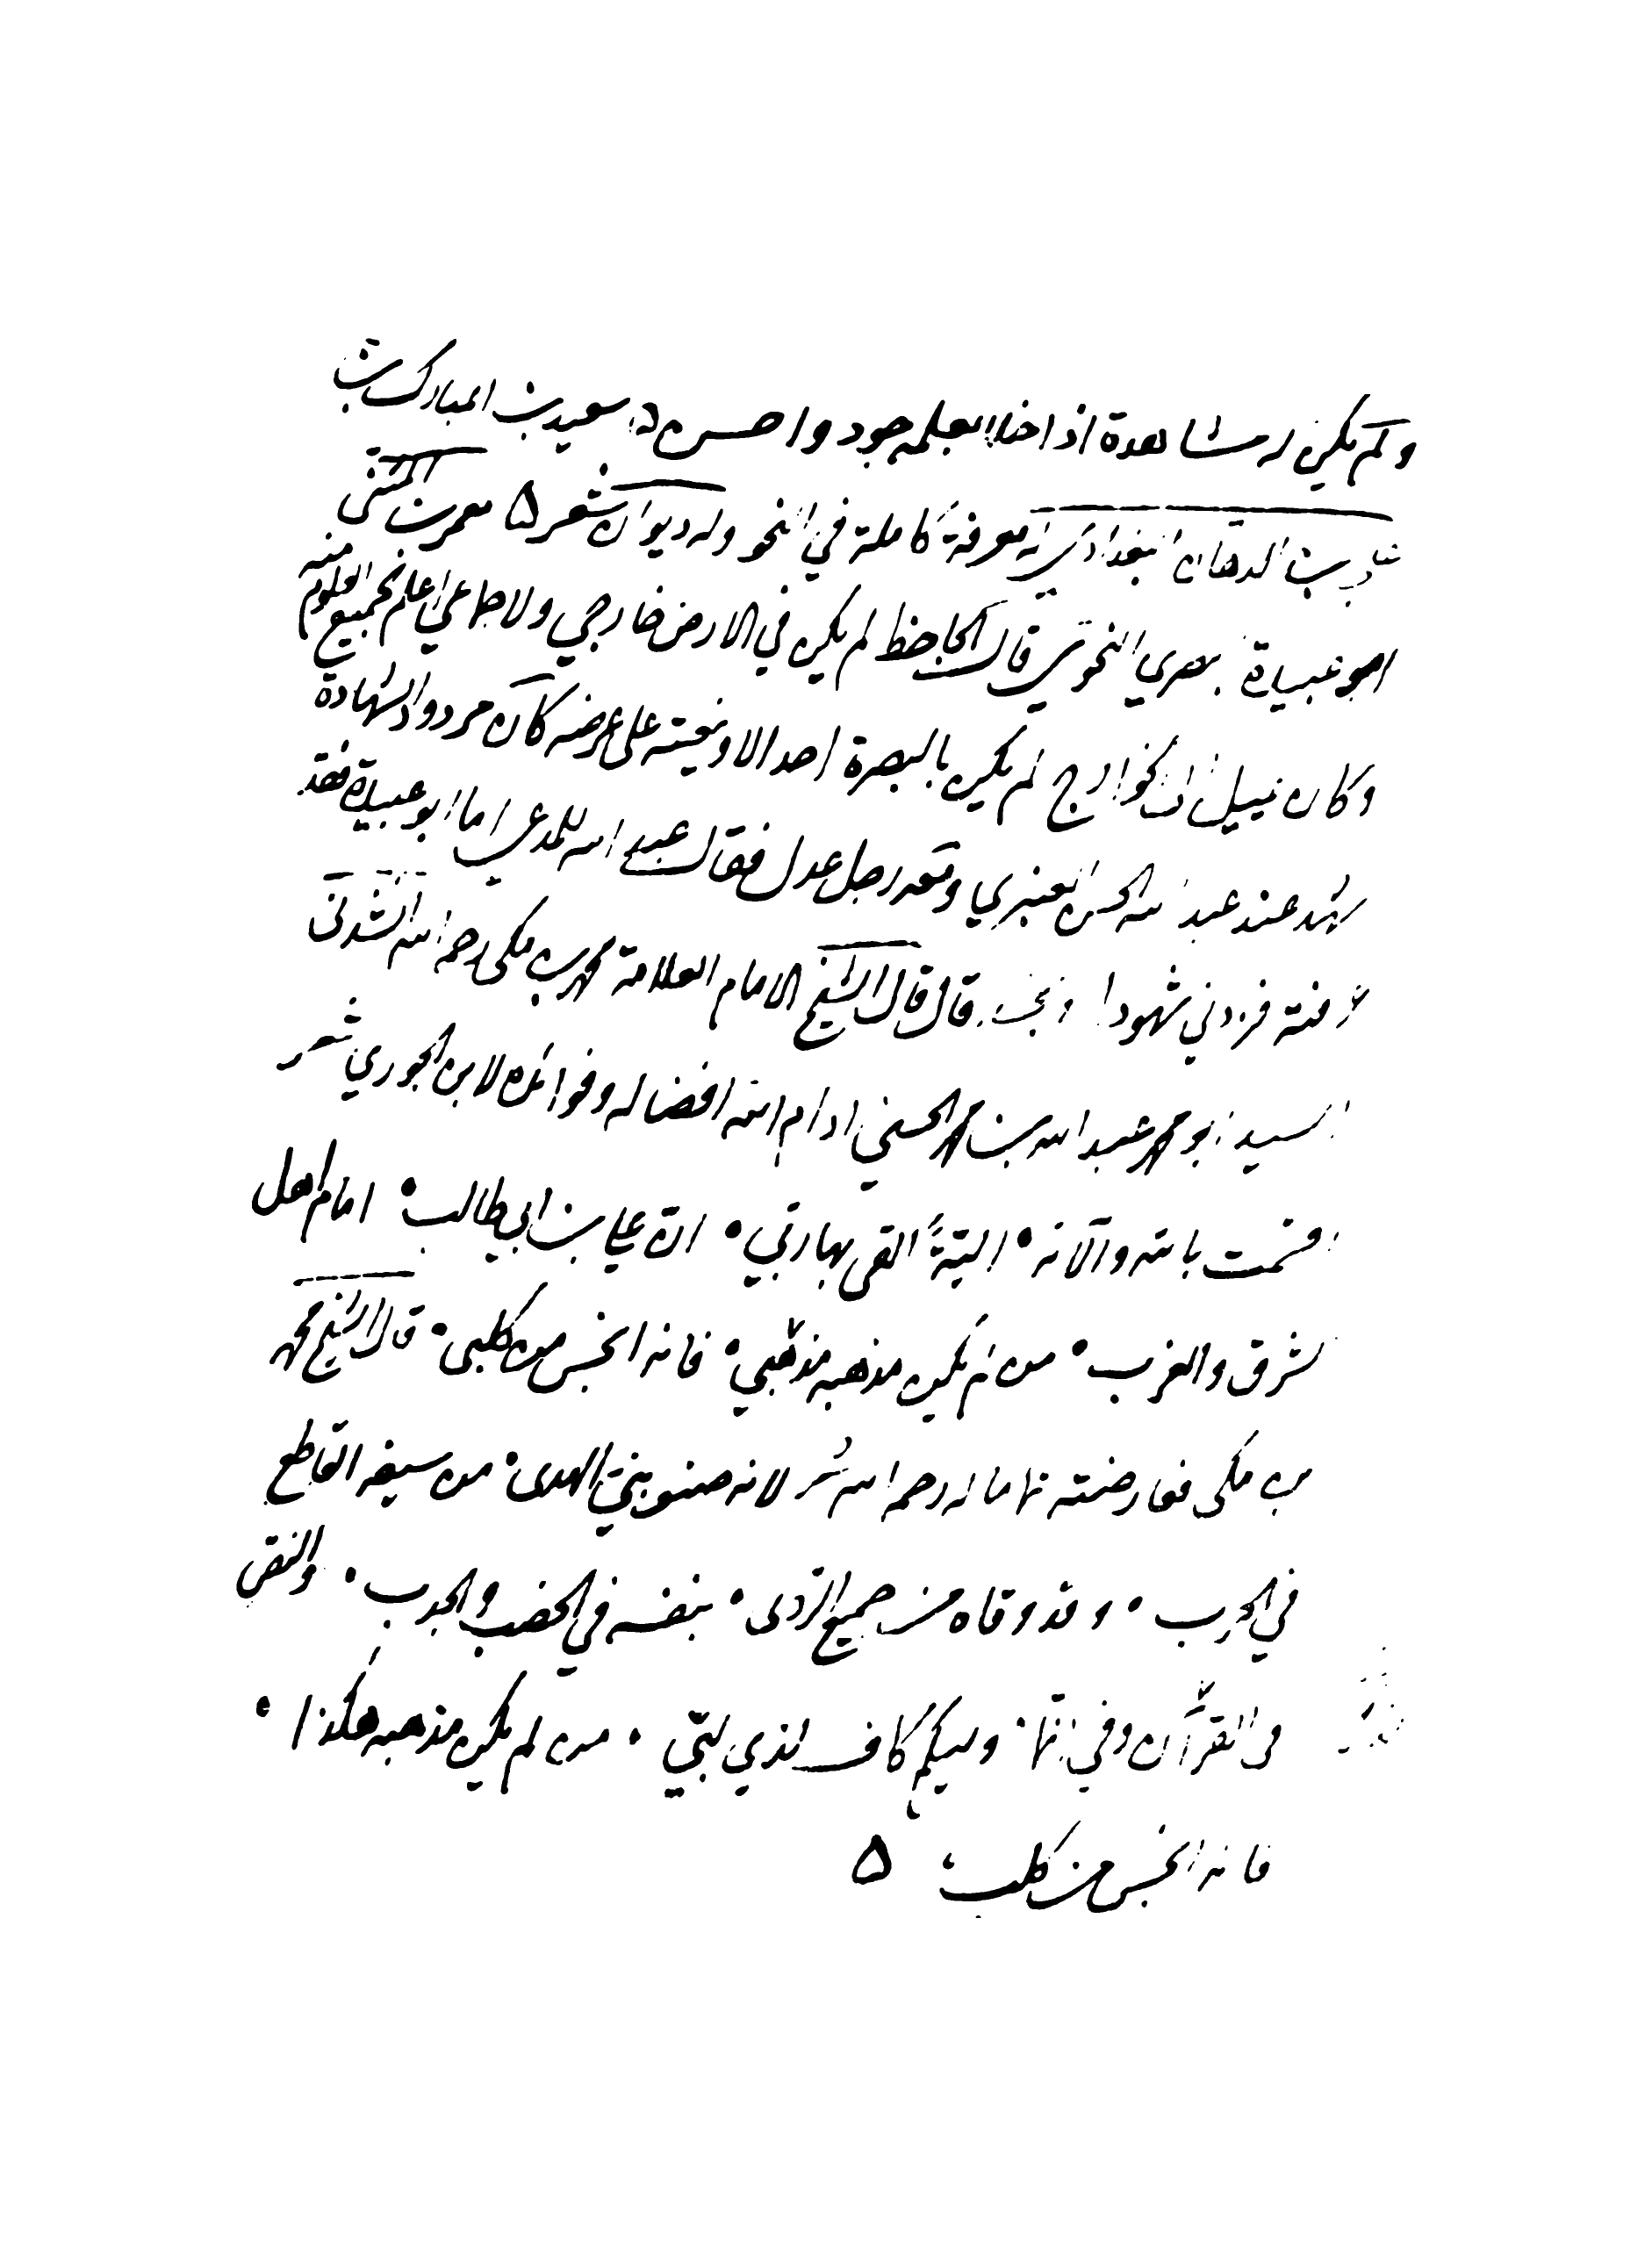 ولم يكن له مشاهدة اذا خلا بعلمه جود واحسن ٥ سعيد بن المبارك بن
علي بن الدهان البغدادي له معرفة كاملة في النحو وله ديوان شعر ٥ معمر بن المثنى
ابو عبيدة بصري النحوي قال الجاحظ لم يكن في الارض خارجي ولا جماعي اعلم بجميع العلوم منه
وكان يميل الى الخوارج لم يكن بالبصرة احد الا ويغيبه على عرضه كان مردود الشهادة
شهد عند عبد الله الحسن العنبري ومعه رجل عدل فقال عبد الله للمدعي اما ابو عبيدة فقد
عرفته فزدني شهودا قال قال الشيخ الامام العلامة محمد بن مكي رحمه الله انشدني
السيد ابو محمد عبد الله بن محمد الحسيني ادام الله افضاله وفوائده لابن الجوزي شعر
اقسمت بالله وآلائه • الية القى بها ربي • ان علي بن ابي طالب • امام اهل
الشرق والغرب • من لم يكن مذهبه مذهبي • فانه انجس من كلبي • قال الشيخ محمد
بن مكي فعارضته تماما له رحمه الله شعر لانه صنو نبي الهدى • من سيفه القاطع
في الحرب • وقد وقاه من جميع الردى • بنفسه في الخصب والجدب • والنص
في القرآن وفي انما • وليكم كاف لذي لبّ • من لم يكن مذهبه هكذا •
فانه انجس من كلب ٥